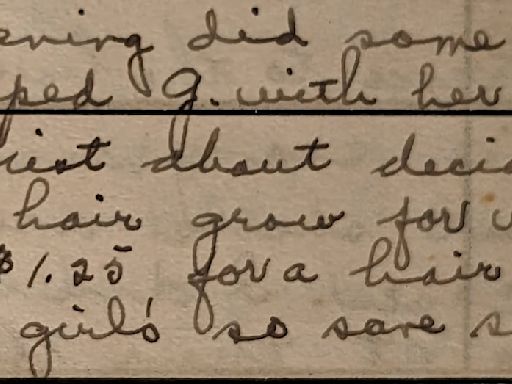 ening did some
ped G. with her
iest about deci
hair grow for
$1.25 for a hair
girls' so save s